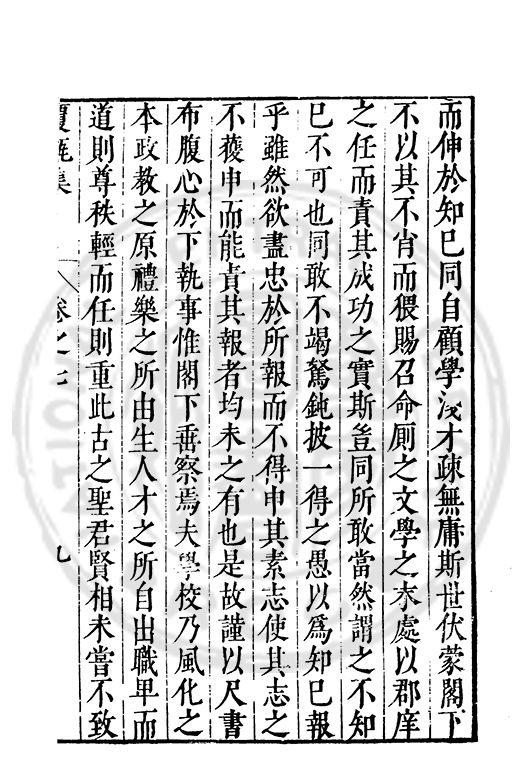 而伸於知巳同自顧學淺才疎無庸斯世伏蒙閣下
不以其不肖而猥賜召命厠之文學之末處以郡庠
之任而責其成功之實斯豈同所敢當然謂之不知
巳不可也同敢不竭駑鈍披一得之愚以爲知巳報
乎雖然欲盡忠於所報而不得申其素志使其志之
不獲申而能責其報者均未之有也是故謹以尺書
布腹心於下執事惟閣下垂察焉夫學校乃風化之
本政教之原禮樂之所由生人才之所自出職卑而
道則尊秩輕而任則重此古之聖君賢相未嘗不致
覆瓿集 卷之七 九